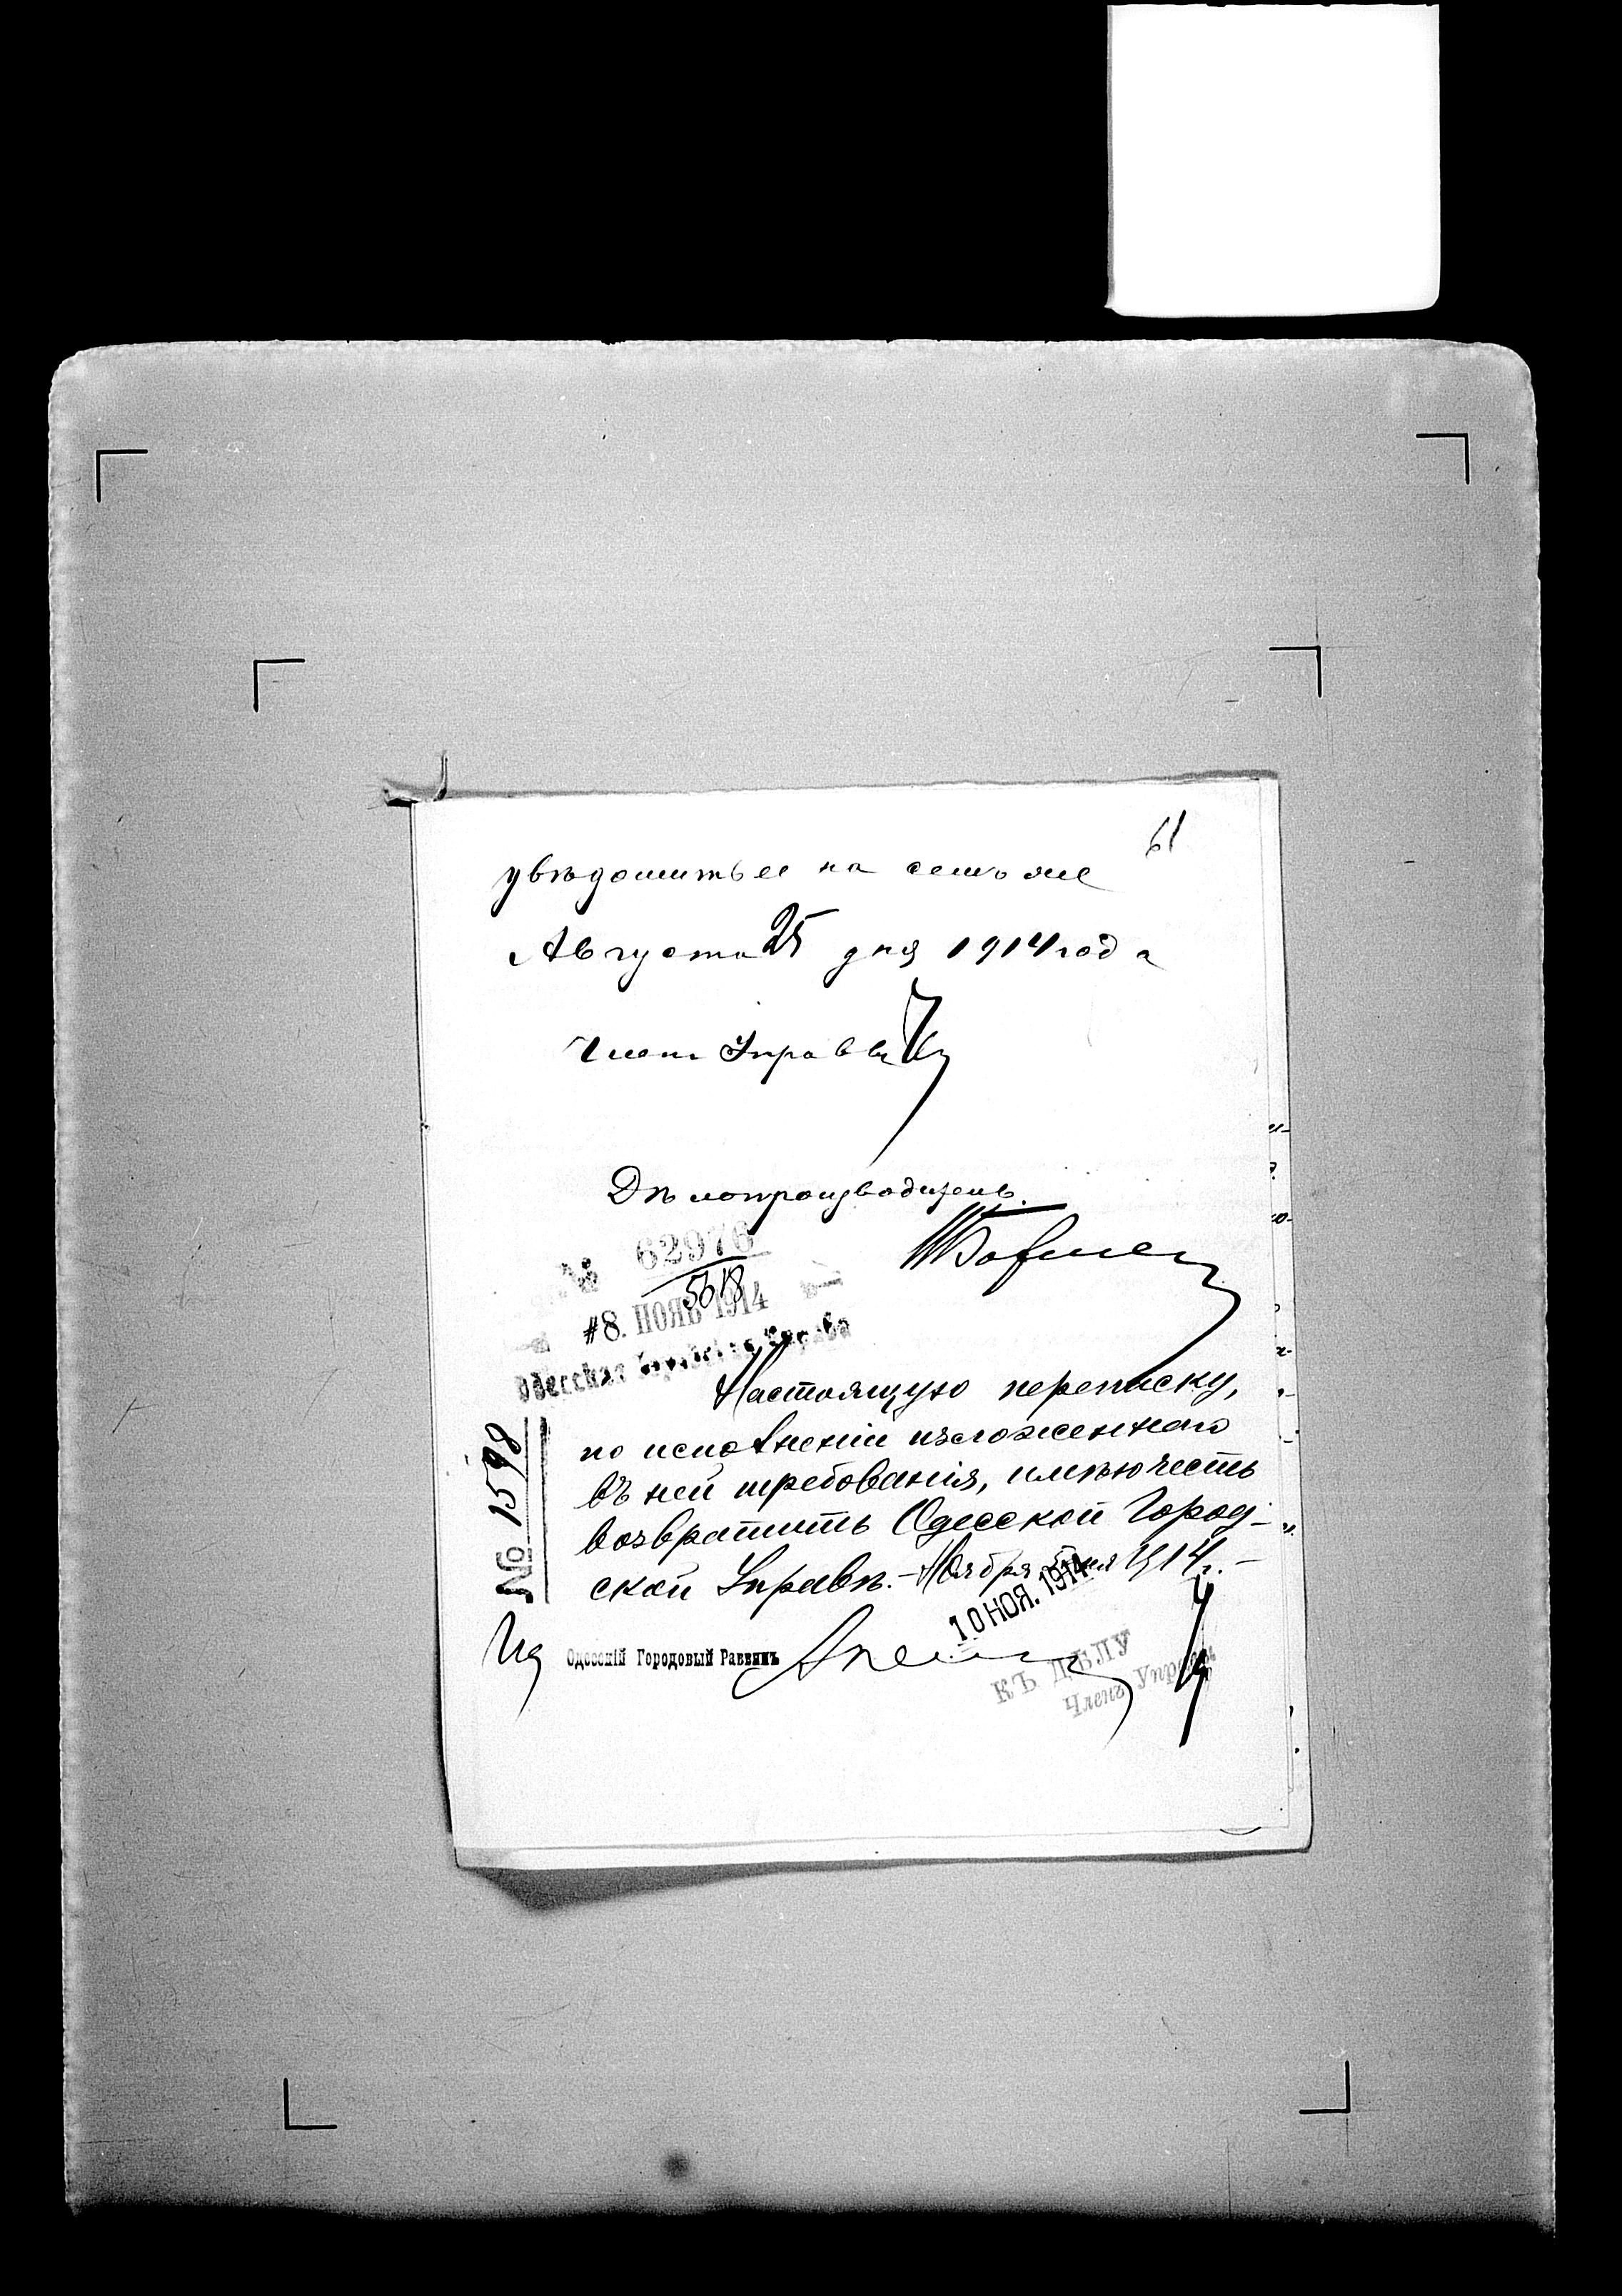 61
увѣдомить ее на семъ же
Августа 25 дня 1914 года
Членъ Управы
Дѣлопроизводитель
№ 62976
5618
8. НОЯБ 1914
Одесская Городская Управа
Настоящую переписку,
по исполненіи изложеннаго
въ ней требованія, имѣю честь
возвратить Одесской Город-
ской Управѣ. - Ноября 5 дня 1914 г. -
№ 1598
10 НОЯ. 1914
Одесскій Городовый Раввинъ
КЪ ДѢЛУ
Членъ Управы